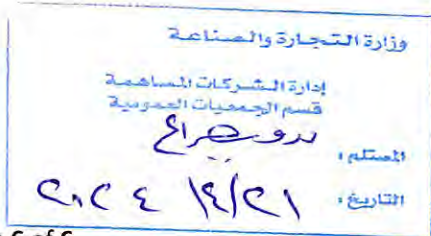 وزارة التجارة والصناعة
إدارة الشركات المساهمة
قسم الجمعيات العمومية
المستلم :
التاريخ : ٢١/٤/٢٠٢٤